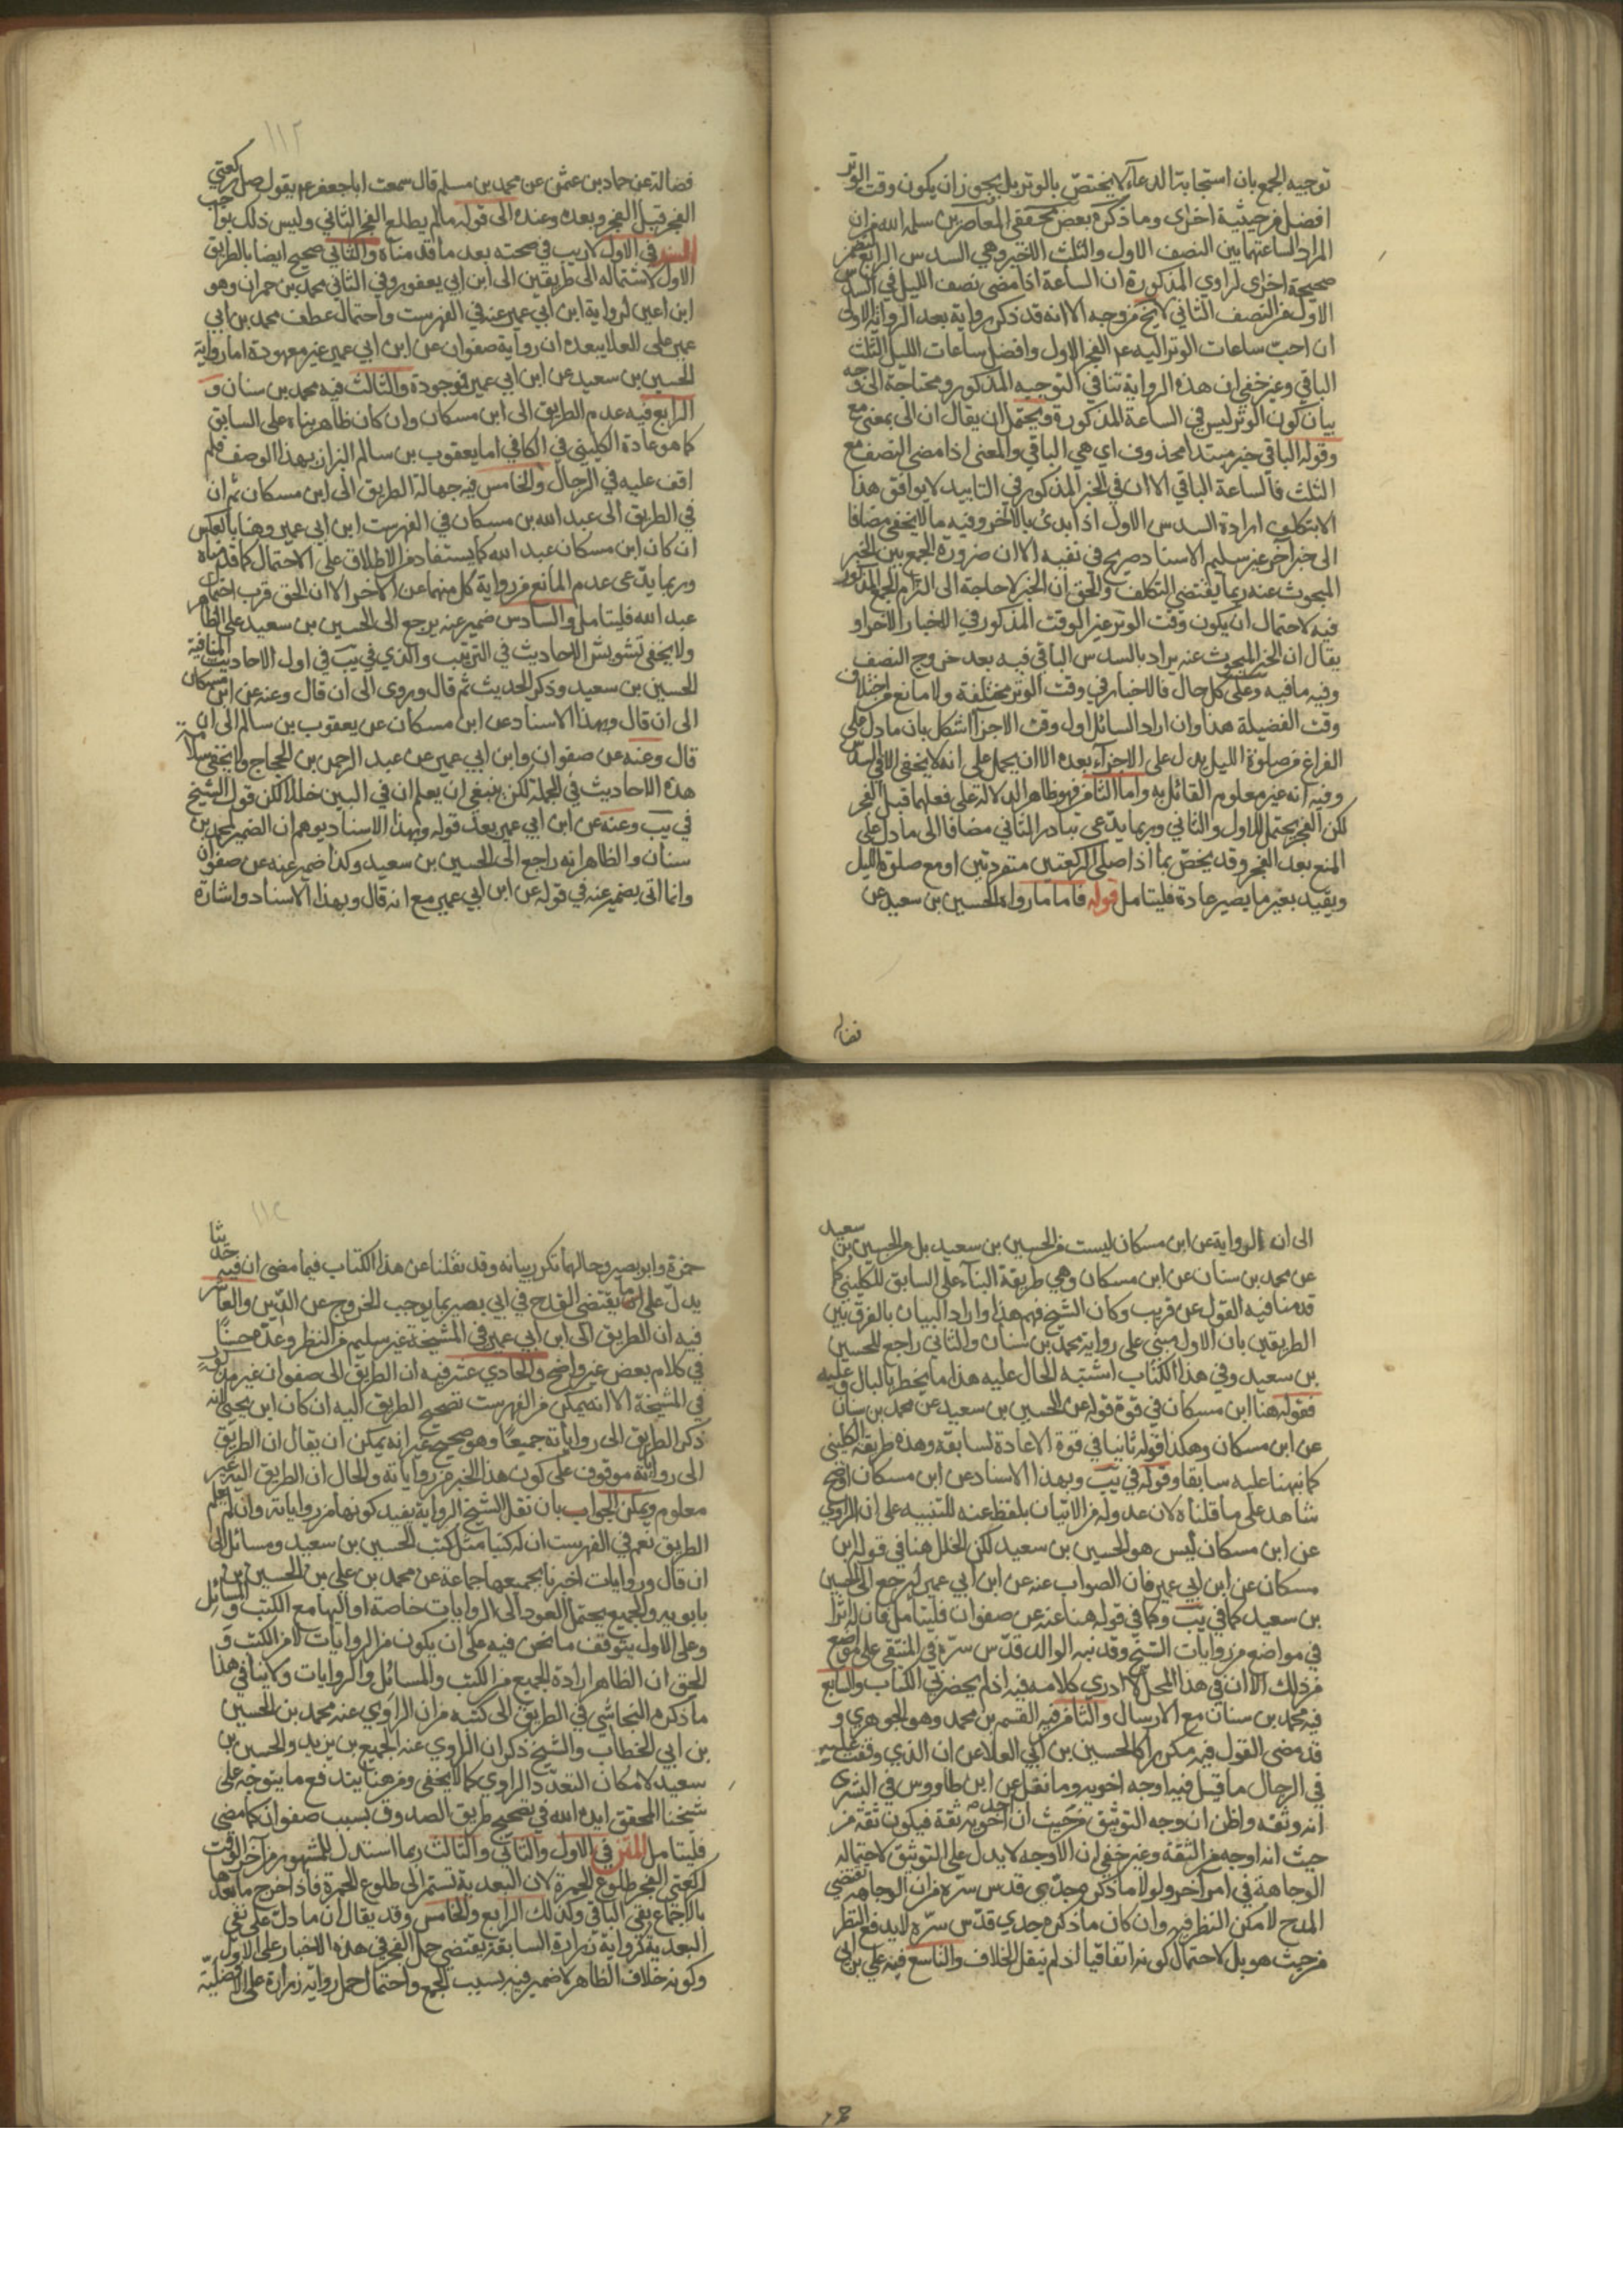 توجيه الجمع بان استجابة الدعآء لا يختصّ بالوتر بل يجوز ان يكون وقت الوتر
افضل من حيثية اخرى وما ذكره بعض محققي المعاصرين سلمه الله من ان
المراد الساعة ما بين النصف الاول والثلث الاخير وهي السدس الرابع
صحيحة اخرى لراوي المذكورة ان الساعة اذا مضى نصف الليل في السدس
الاول من النصف الثاني لا يخ من وجه الا انه قد ذكر رواية بعد الرواية الاولى
ان احبّ ساعات الوتر اليه عم الفجر الاول وافضل ساعات الليل الثلث
الباقي وغير خفي ان هذه الرواية تنافي التوجيه المذكور ومحتاجة الى وجه
بيان كون الوتر ليس في الساعة المذكورة ويحتمل ان يقال ان الى بمعنى مع
وقوله الباقي خبر مبتدا محذوف اي هي الباقي والمعنى اذا مضى النصف مع
الثلث فالساعة الباقي الا ان في الخبر المذكور في التاييد لا يوافق هذا
الا بتكلف ارادة السدس الاول اذا بدئ بالآخر وفيه ما لا يخفى مضافا
الى خبر آخر غير سليم الاسناد صريح في نفيه الا ان ضرورة الجمع بين الخبر
المبحوث عنه ربما يقتضي التكلف والحق ان الخبر لا حاجة الى التزام الجمع المذكور
فيه لاحتمال ان يكون وقت الوتر غير الوقت المذكور في الاخبار الاخر او
يقال ان الخبر المبحوث عنه يراد بالسدس الباقي فيه بعد خروج النصف
وفيه ما فيه وعلى كل حال فالاخبار في وقت الوتر مختلفة ولا مانع من اختلاف
وقت الفضيلة هذا وان اراد السائل اول وقت الاجزآ اشكل بان ما دل على
الفراغ من صلوة الليل يدل على الاجزآء بعده الا ان يحمل على انه لا يخفى الا في السدس
وفيه انه غير معلوم القائل به واما الثامن فهو ظاهر الدلالة على فعلهما قبل الفجر
لكن الفجر يحتمل الاول والثاني وربما يدّعى تبادر الثاني مضافا الى ما دل على
المنع بعد الفجر وقد يخصّ بما اذا صلى الركعتين منفردتين او مع صلوة الليل
ويقيّد بغير ما يصير عادة فليتامل قوله فاما ما رواه الحسين بن سعيد عن
فضاله
١١٢
فضالة عن حماد بن عثمن عن محمد بن مسلم قال سمعت ابا جعفر عم يقول صل ركعتي
الفجر قبل الفجر وبعده وعنده الى قوله ما لم يطلع الفجر الثاني وليس ذلك بواجب
السند في الاول لا ريب في صحته بعد ما قدمناه والثاني صحيح ايضا بالطريق
الاول لاشتماله الى طريقين الى ابن ابي يعفور وفي الثاني محمد بن حمران وهو
ابن اعين لرواية ابن ابي عمير عنه في الفهرست واحتمال عطف محمد بن ابي
عمير على العلا يبعده ان رواية صفوان عن ابن ابي عمير غير معهودة اما رواية
الحسين بن سعيد عن ابن ابي عمير فموجودة والثالث فيه محمد بن سنان و
الرابع فيه عدم الطريق الى ابن مسكان وان كان ظاهر بناه على السابق
كما هو عادة الكليني في الكافي اما يعقوب بن سالم البزاز بهذا الوصف فلم
اقف عليه في الرجال والخامس فيه جهالة الطريق الى ابن مسكان ثم ان
في الطريق الى عبد الله بن مسكان في الفهرست ابن ابي عمير وهنا بالعكس
ان كان ابن مسكان عبد الله كما يستفاد من الاطلاق على الاحتمال كما قدمناه
وربما يدّعى عدم المانع من رواية كل منهما عن الآخر الا ان الحق قرب احتمال
عبد الله فليتامل والسادس ضمير عنه يرجع الى الحسين بن سعيد على الظاهر
ولا يخفى تشويش الاحاديث في الترتيب والذي في يب في اول الاحاديث المنافية
الحسين بن سعيد وذكر الحديث ثم قال وروى الى ان قال وعنه عن ابن مسكان
الى ان قال وبهذا الاسناد عن ابن مسكان عن يعقوب بن سالم الى ان
قال وعنه عن صفوان وابن ابي عمير عن عبد الرحمن بن الحجاج ولا يخفى سلامة
هذه الاحاديث في الجملة لكن ينبغي ان يعلم ان في البين خللا لكن قول الشيخ
في يب وعنه عن ابن ابي عمير بعد قوله وبهذا الاسناد يوهم ان الضمير لمحمد بن
سنان والظاهر انه راجع الى الحسين بن سعيد وكذا ضمير عنه عن صفوان
وانما اتى بضمير عنه في قوله عن ابن ابي عمير مع انه قال وبهذا الاسناد واشارة
الى ان الرواية عن ابن مسكان ليست من الحسين بن سعيد بل من الحسين بن سعيد
عن محمد بن سنان عن ابن مسكان وهي طريقة البنآء على السابق للكليني كما
قدمنا فيه القول عن قريب وكان الشيخ فهم هذا واراد البيان بالفرق بين
الطريقين بان الاول مبني على رواية محمد بن سنان والثاني راجع للحسين
بن سعيد وفي هذا الكتاب اشتبه الحال عليه هذا ما يخطر بالبال وعليه
فقوله هنا ابن مسكان في قوة قوله عن الحسين بن سعيد عن محمد بن سنان
عن ابن مسكان وهكذا قوله ثانيا في قوة الاعادة لسابقه وهذه طريقة الكليني
كما نبهنا عليه سابقا وقوله في يب وبهذا الاسناد عن ابن مسكان اوضح
شاهد على ما قلناه لان عدوله من الاتيان بلفظ عنه للتنبيه على ان الراوي
عن ابن مسكان ليس هو الحسين بن سعيد لكن الخلل هنا في قوله ابن
مسكان عن ابن ابي عمير فان الصواب عنه عن ابن ابي عمير ليرجع الى الحسين
بن سعيد كما في يب وكما في قوله هنا عنه عن صفوان فليتامل فان له اثرا
في مواضع من روايات الشيخ وقد نبه الوالد قدّس سرّه في المنتقى على مواضع
من ذلك الا ان في هذا المحل لا ادري كلامه فيه اذ لم يحضرني الكتاب والسابع
فيه محمد بن سنان مع الارسال والثامن فيه القسم بن محمد وهو الجوهري و
قد مضى القول فيه مكررا كالحسين بن ابي العلا عن ان الذي وقفت عليه
في الرجال ما قيل فيه اوجه اخويه وما نقل عن ابن طاووس في البشرى
انه وثقه واظن ان وجه التوثيق من حيث ان اخويه ثقة فيكون ثقة من
حيث انه اوجه من الثقة وغير خفي ان الاوجه لا يدل على التوثيق لاحتمال
الوجاهة في امر آخر ولولا ما ذكره جدّي قدس سرّه من ان الوجاهة تقتضي
المدح لامكن النظر فيه وان كان ما ذكره جدي قدّس سرّه لا يدفع النظر
من حيث هو بل لاحتمال كونه اتفاقيا اذ لم ينقل الخلاف والتاسع فيه علي بن ابي
١١٣
حمزة وابو بصير وحالهما تكرر بيانه وقد نقلنا عن هذا الكتاب فيما مضى ان فيه حديثا
يدلّ على ما يقتضي القدح في ابي بصير بما يوجب الخروج عن الدّين والعاشر
فيه ان الطريق الى ابن ابي عمير في المشيخة غير سليم من النظر وعدّه حسنًا
في كلام بعض غير واضح والحادي عشر فيه ان الطريق الى صفوان غير مذكور
في المشيخة الا انه يمكن من الفهرست تصحيح الطريق اليه ان كان ابن يحيى لانه
ذكر الطريق الى رواياته جميعًا وهو صحيح غير انه يمكن ان يقال ان الطريق
الى رواياته موقوف على كون هذا الخبر من رواياته والحال ان الطريق اليه غير
معلوم ويمكن الجواب بان نقل الشيخ الرواية يفيد كونها من رواياته وان لم يعلم
الطريق نعم في الفهرست ان له كتبا مثل كتب الحسين بن سعيد ومسائل الى
ان قال وروايات اخبرنا بجميعها جماعة عن محمد بن علي بن الحسين بن
بابويه والجميع يحتمل العود الى الروايات خاصة او اليها مع الكتب والمسائل
وعلى الاول يتوقف ما نحن فيه على ان يكون من الروايات لا من الكتب و
الحق ان الظاهر ارادة الجميع من الكتب والمسائل والروايات ولا ينافي هذا
ما ذكره النجاشي في الطريق الى كتبه من ان الراوي عنه محمد بن الحسين
بن ابي الخطاب والشيخ ذكر ان الراوي عنه الجميع بن يزيد والحسين بن
سعيد لامكان التعدد الراوي كما لا يخفى ومن هنا يندفع ما يتوجّه على
شيخنا المحقق ايده الله في تصحيح طريق الصدوق بسبب صفوان كما مضى
فليتامل المتن في الاول والثاني والثالث ربما استدل للمشهور من آخر الوقت
لركعتي الفجر طلوع الحمرة لان البعدية تستمر الى طلوع الحمرة فاذا خرج ما بعدها
بالاجماع بقي الباقي وكذلك الرابع والخامس وقد يقال ان ما دل على نفي
البعدية كرواية زرارة السابقة يقتضي حمل الفجر في هذه الاخبار على الاول
وكونه خلاف الظاهر لا ضير فيه بسبب الجمع واحتمال حمل رواية زرارة على الافضليّة